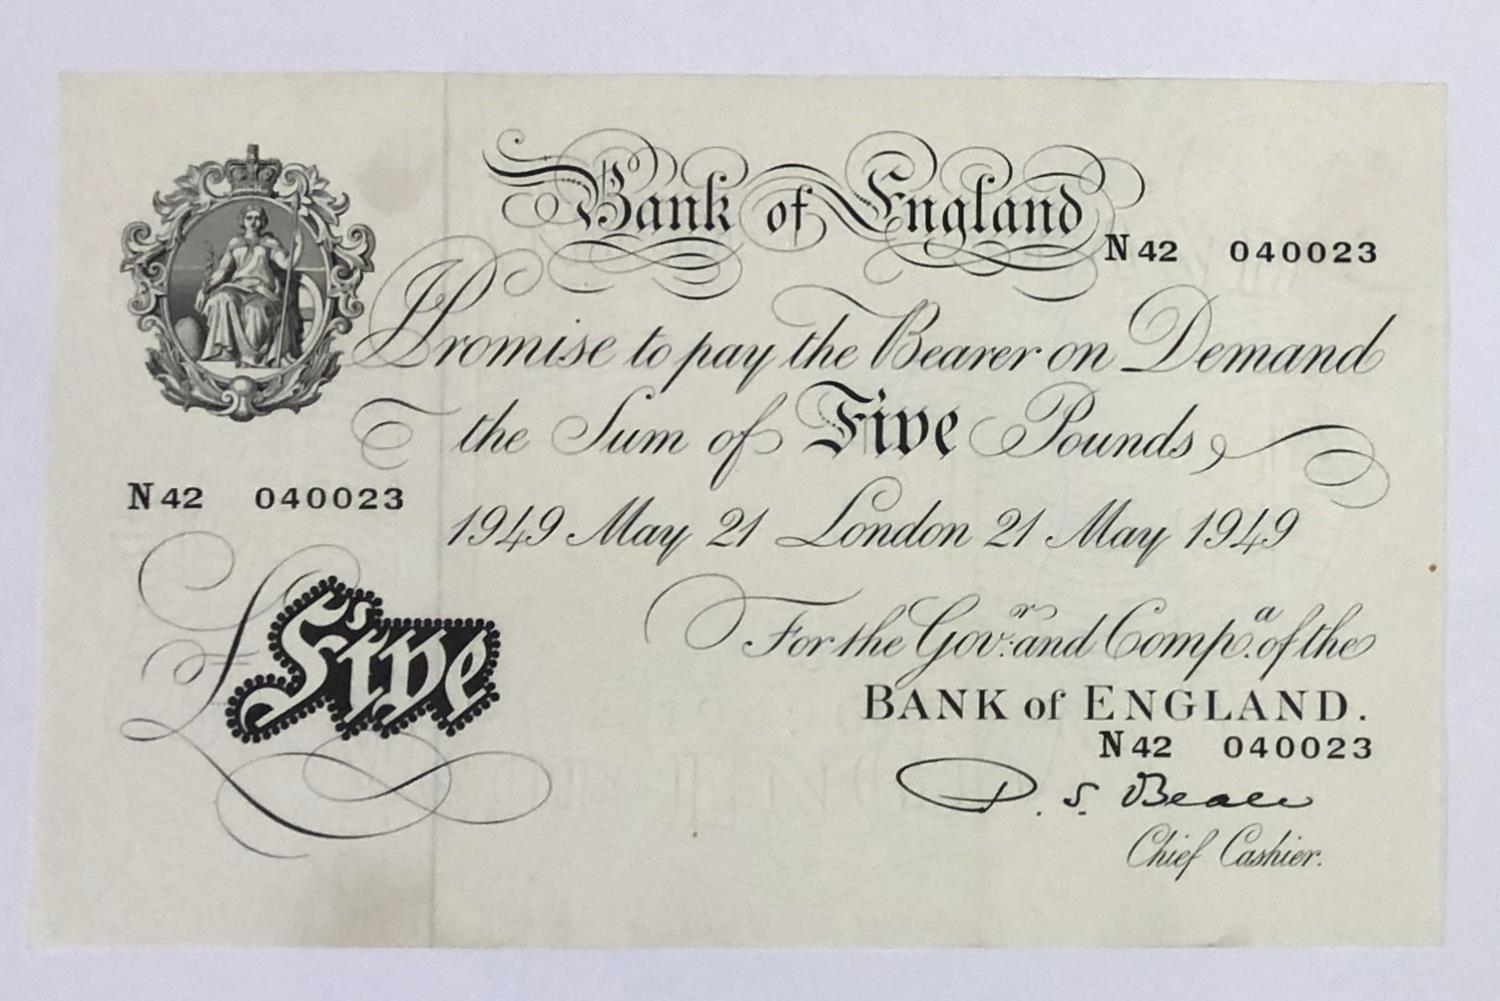 Bank of England
N 42 040023
I Promise to pay the Bearer on Demand
the Sum of Five Pounds
N 42 040023
1949 May 21 London 21 May 1949
£Five
For the Govr. and Compa. of the
BANK of ENGLAND.
N 42 040023
P. S. Beale
Chief Cashier.